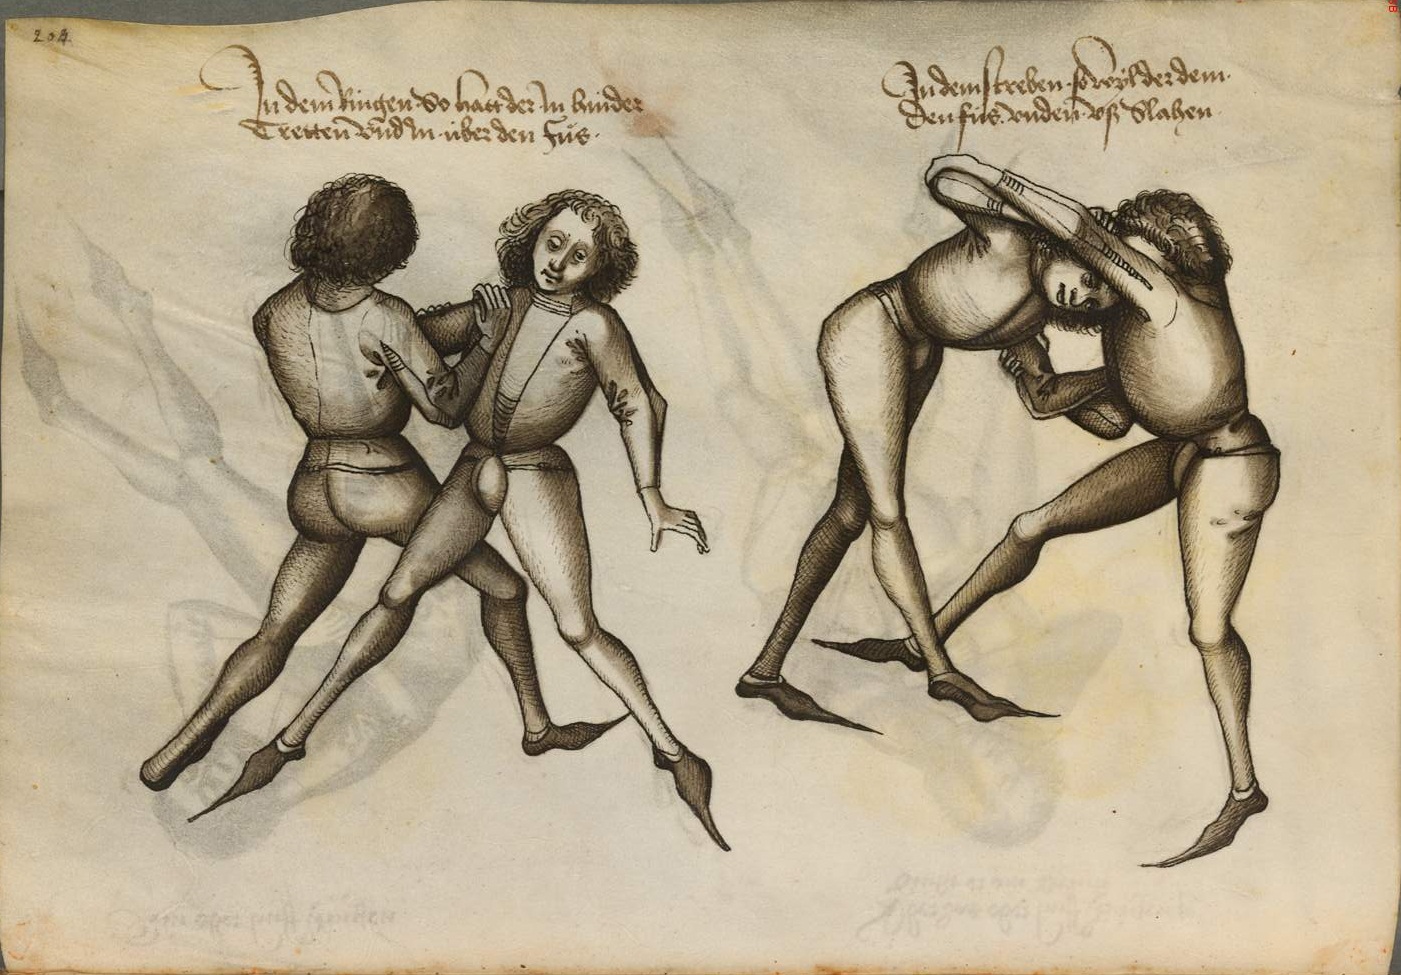 204
In dem Ringen So hatt der In hinder
Tretten vnd In über den Fůs
In dem streben so wyl der dem
Den fůs vnden vsz Slahen